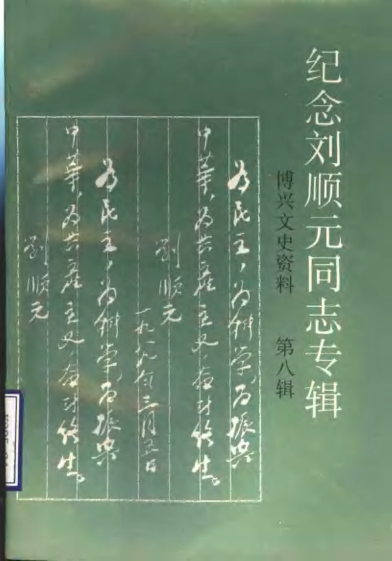 纪念刘顺元同志专辑
博兴文史资料 第八辑
为民主，为科学，为振兴
中华，为共产主义，奋斗终生。
刘顺元
一九八九年三月五日
为民主，为科学，为振兴
中华，为共产主义，奋斗终生。
刘顺元